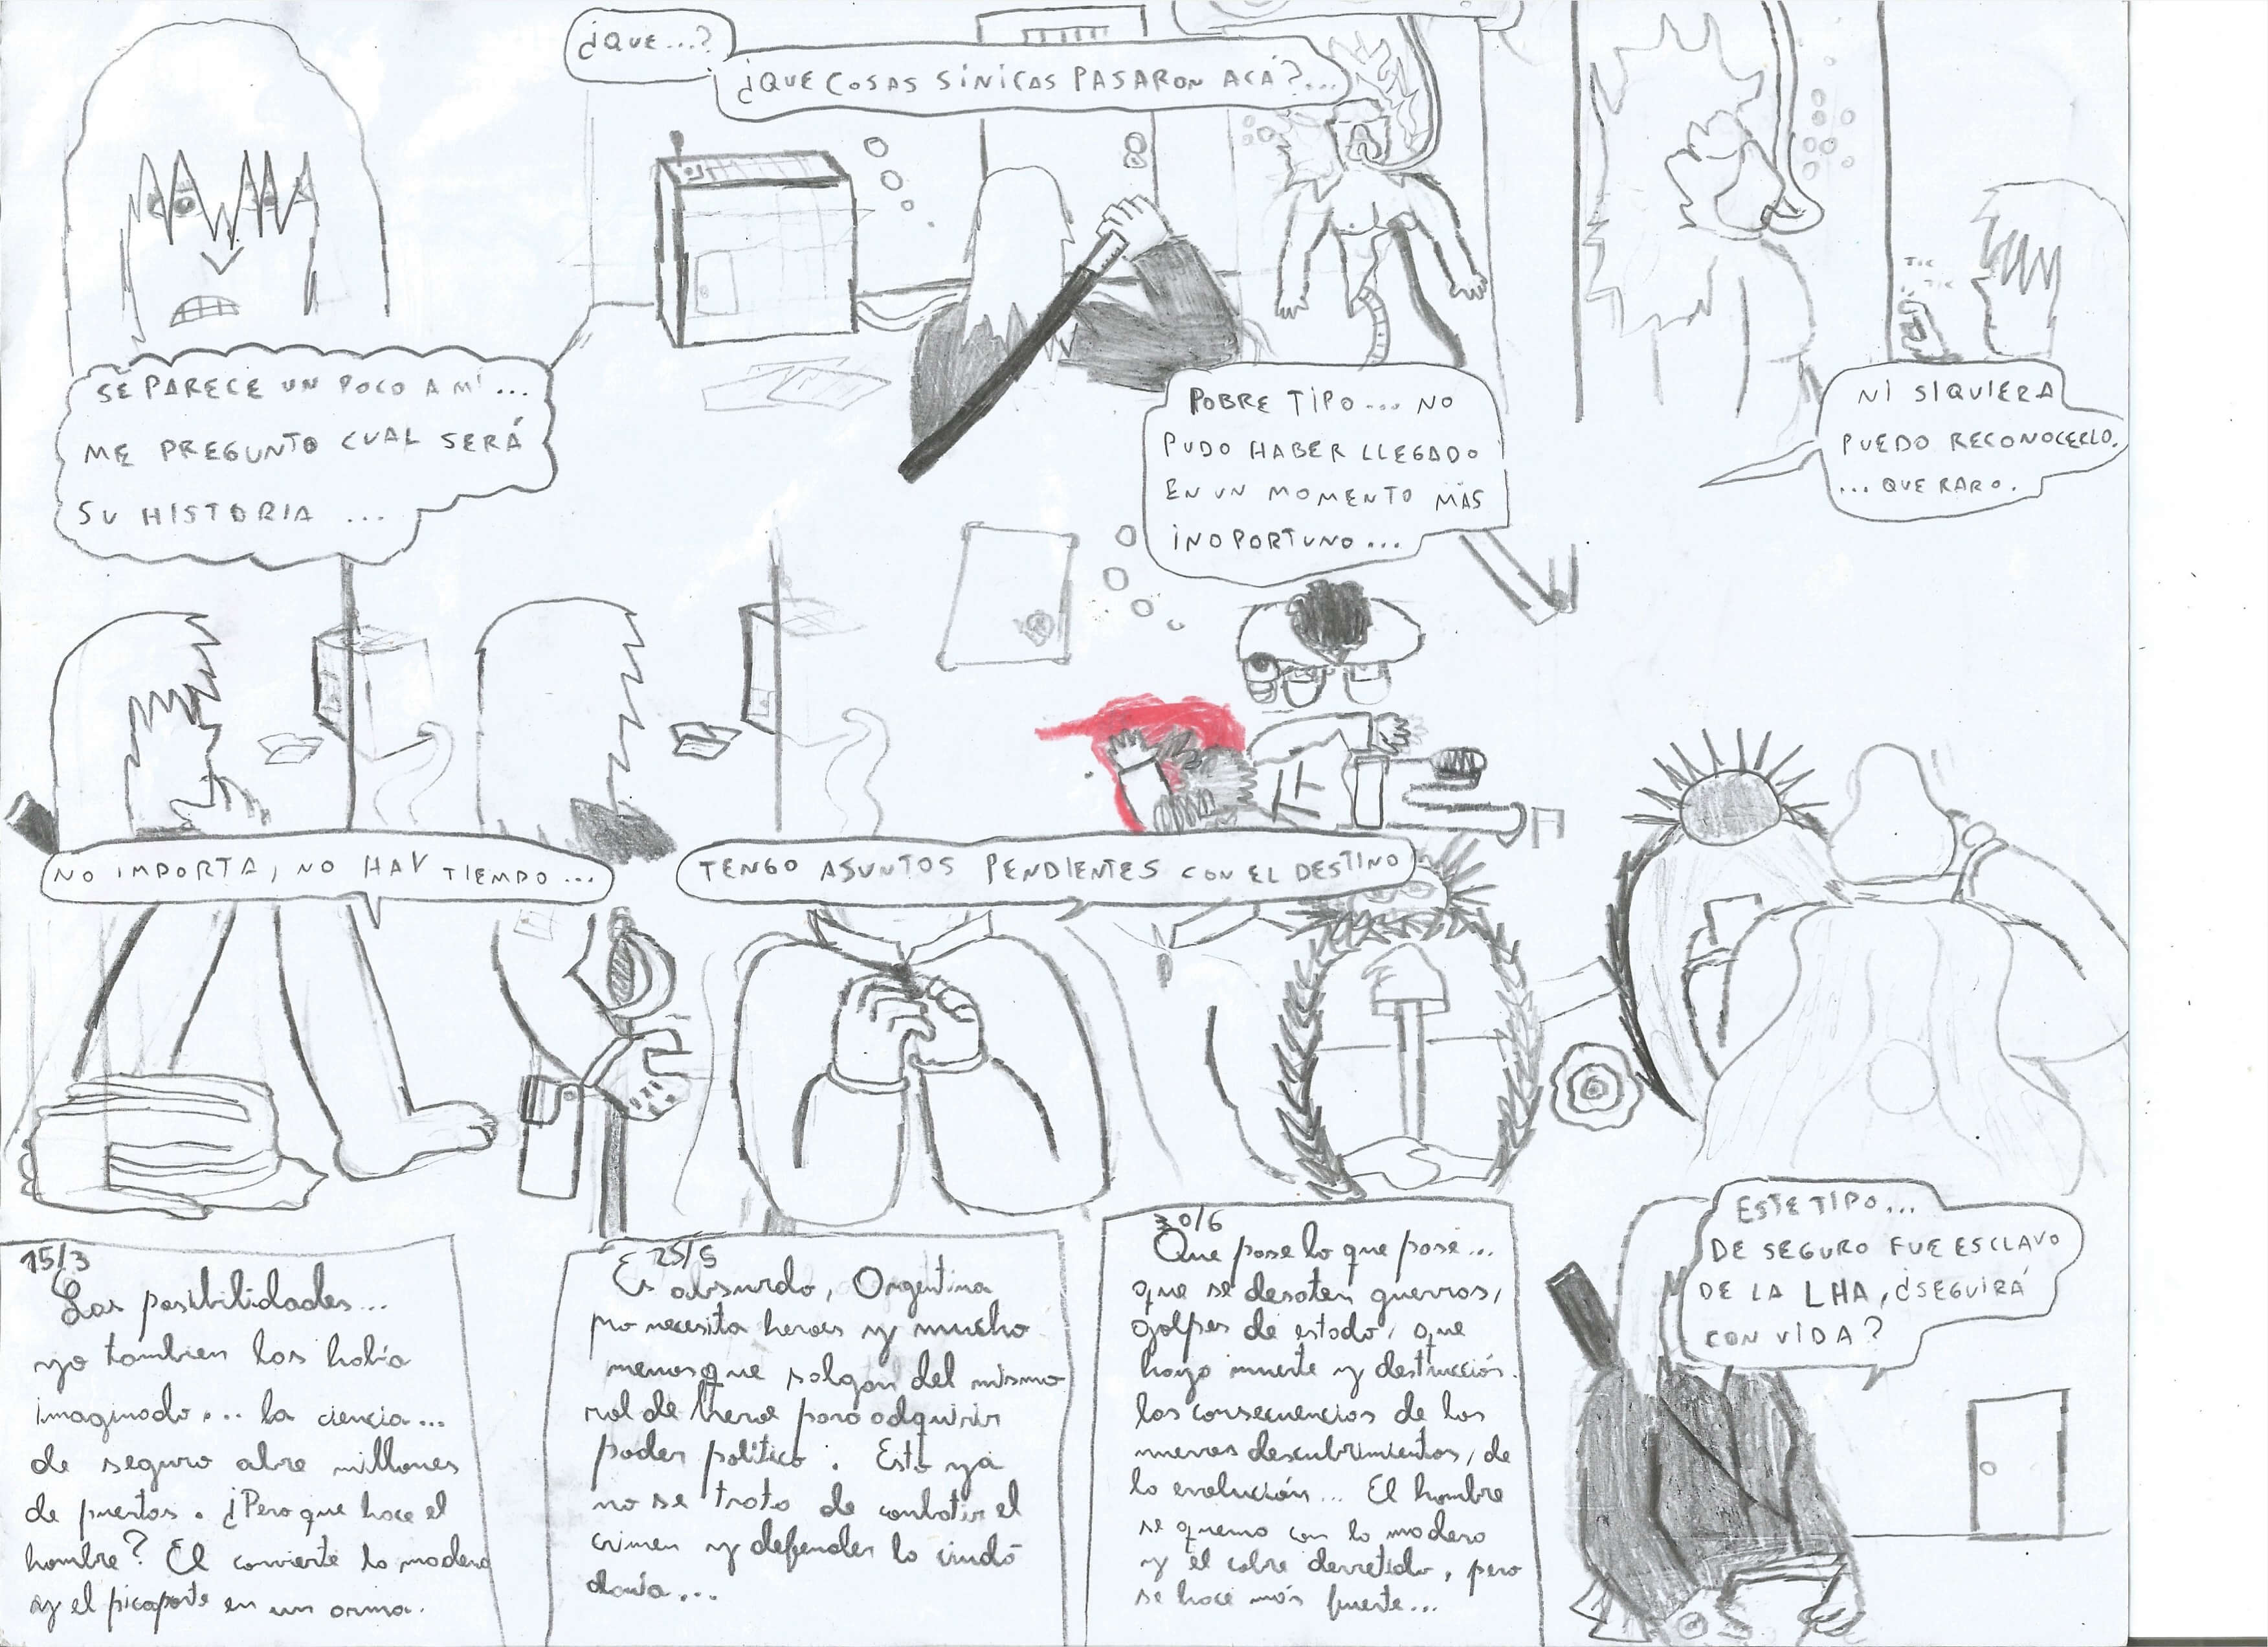 ¿QUE...?
¿QUE COSAS SINICAS PASARON ACÁ?...
SE PARECE UN POCO A MI...
ME PREGUNTO CUAL SERÁ
SU HISTORIA ...
POBRE TIPO... NO
PUDO HABER LLEGADO
EN UN MOMENTO MÁS
INOPORTUNO...
TIC
TIC
NI SIQUIERA
PUEDO RECONOCERLO.
... QUE RARO.
NO IMPORTA, NO HAY TIEMPO...
TENGO ASUNTOS PENDIENTES CON EL DESTINO
15/3
Las posibilidades...
yo tambien las habia
imaginado... la ciencia...
de seguro abre millones
de puertas. ¿Pero que hace el
hombre? El convierte la madera
y el picaporte en un arma.
25/5
Es absurdo, Argentina
no necesita heroes y mucho
menos que salgan del mismo
rol de heroe para adquirir
poder politico. Esto ya
no se trata de combatir el
crimen y defender la ciuda
dania...
30/6
Que pase lo que pase...
que se desaten guerras,
golpes de estado, que
haya muerte y destrucción.
las consecuencias de los
nuevos descubrimientos, de
la evolución... El hombre
se quema con la madera
y el cobre derretido, pero
se hace más fuerte...
ESTE TIPO...
DE SEGURO FUE ESCLAVO
DE LA LHA, ¿SEGUIRÁ
CON VIDA?